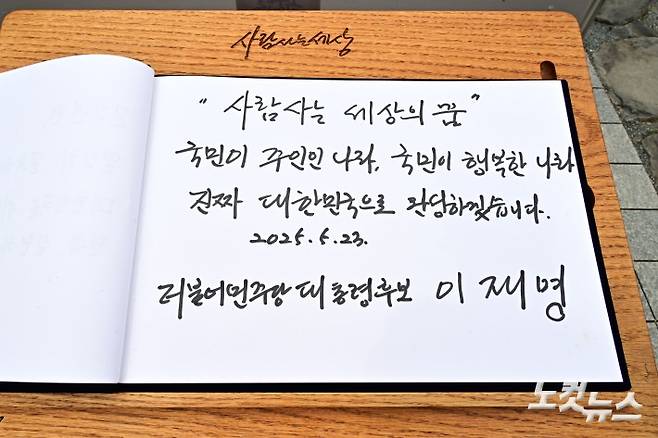 사람사는세상
"사람사는 세상의 꿈"
국민이 주인인 나라, 국민이 행복한 나라
진짜 대한민국으로 완성하겠습니다.
2025. 5. 23.
더불어민주당 대통령후보 이재명
노컷뉴스